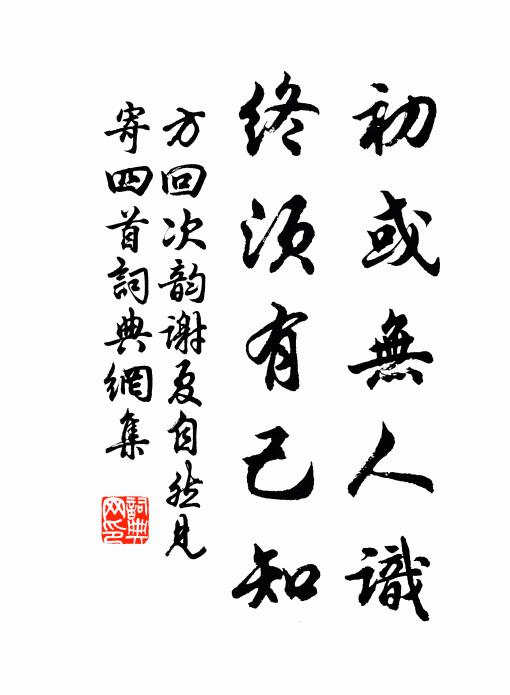 初或無人識
終須有己知
方回次韵謝夏自然見
寄四首詞典網集
詞典
网印